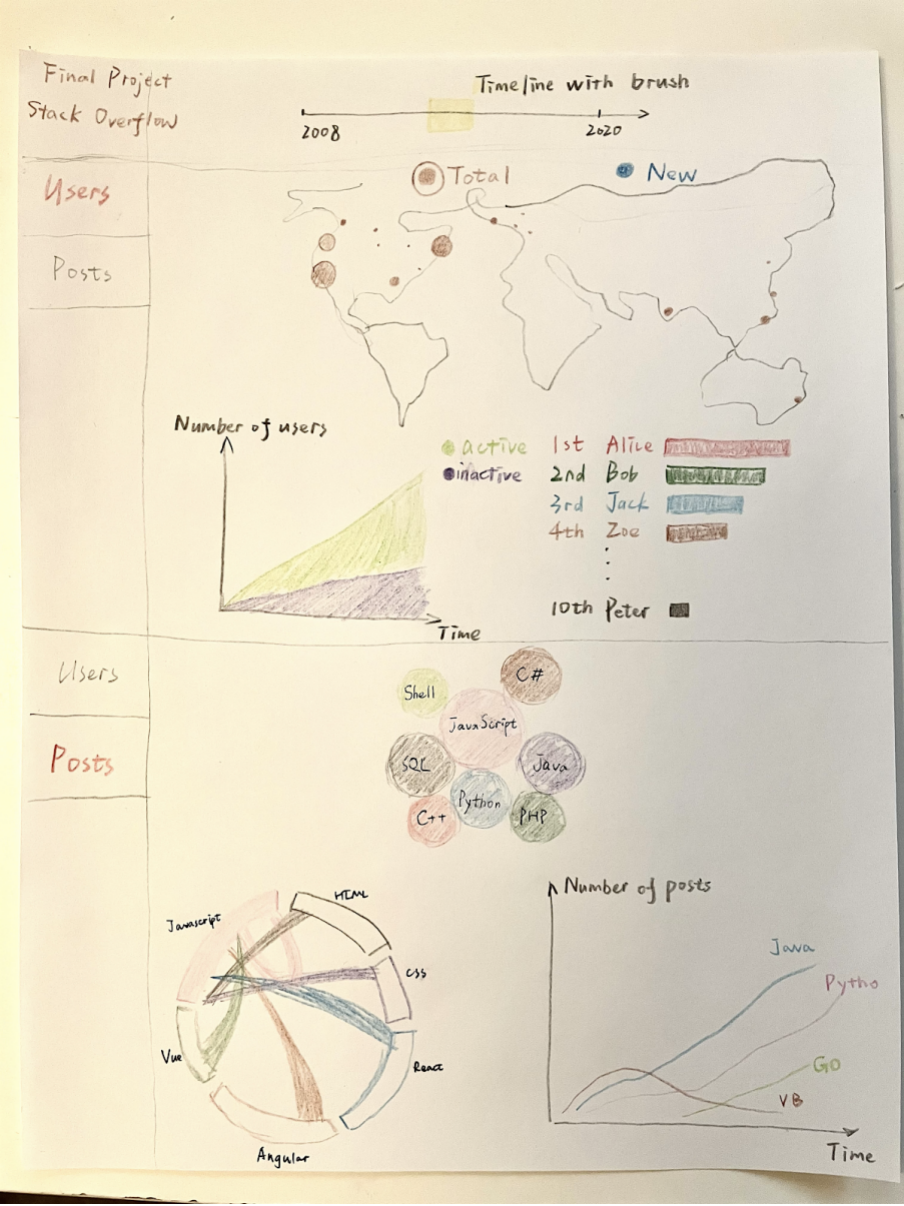 Final Project
Stack Overflow
Timeline with brush
2008
2020
Users
Posts
Total
New
Number of users
active
inactive
Time
1st Alice
2nd Bob
3rd Jack
4th Zoe
10th Peter
Users
Posts
Shell
C#
JavaScript
SQL
Java
Python
C++
PHP
Javascript
HTML
CSS
React
Angular
Vue
Number of posts
Java
Pytho
Go
VB
Time